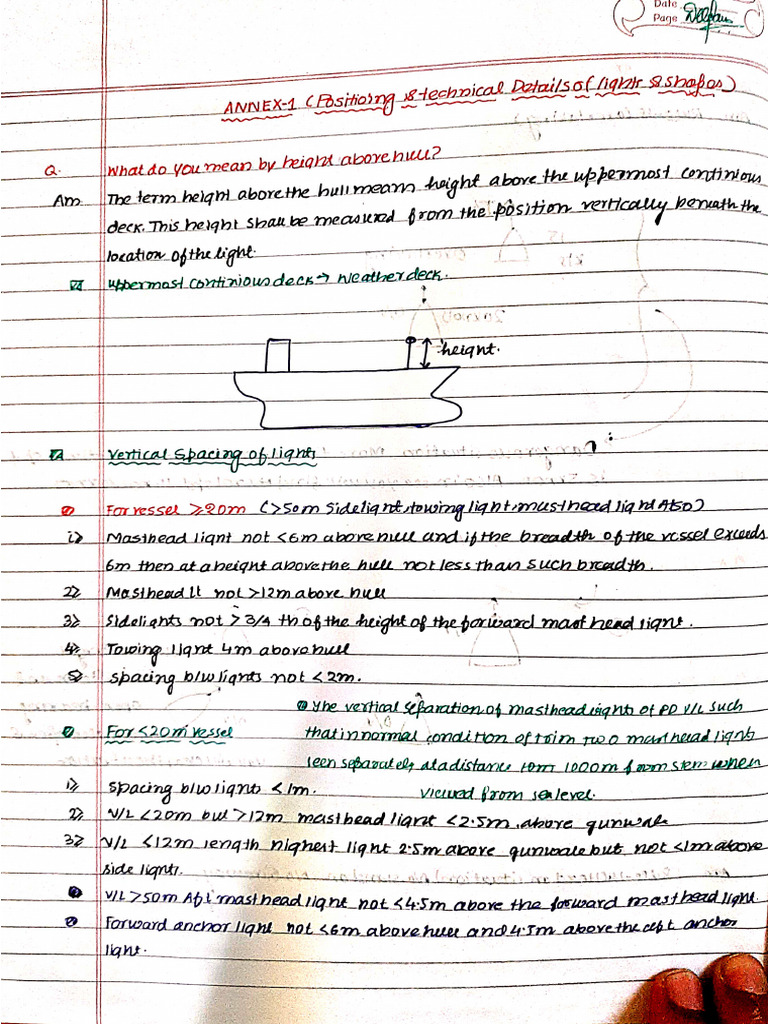 Date
Page
ANNEX-1 (Positioing & technical Details of lights & shapes)
Q. What do you mean by height above hull?
Ans The term height above the hull means height above the uppermost continious
deck. This height shall be measured from the position vertically beneath the
location of the light.
uppermost continious deck → Weather deck.
height.
Vertical Spacing of lights
For vessel ≥20m (>50m sidelight, towing light, masthead light Also)
1) Masthead light not <6m above hull and if the breadth of the vessel exceeds
6m then at a height above the hull not less than such breadth.
2) Masthead lt not >12m above hull
3) Sidelights not >3/4 th of the height of the forward mast head light.
4) Towing light 4m above hull
5) Spacing b/w lights not <2m.
The vertical separation of masthead lights of PD V/L such
that in normal condition of trim two mast head lights
seen separately at a distance 1000m from stem when
viewed from sea level.
For <20m vessel
1) Spacing b/w lights <1m.
2) V/L <20m but >12m masthead light <2.5m above gunwale
3) V/L <12m length highest light 2.5m above gunwale but not <1m above
side lights.
V/L >50m Aft masthead light not <4.5m above the forward mast head light.
Forward anchor light not <6m above hull and 4.5m above the aft anchor
light.